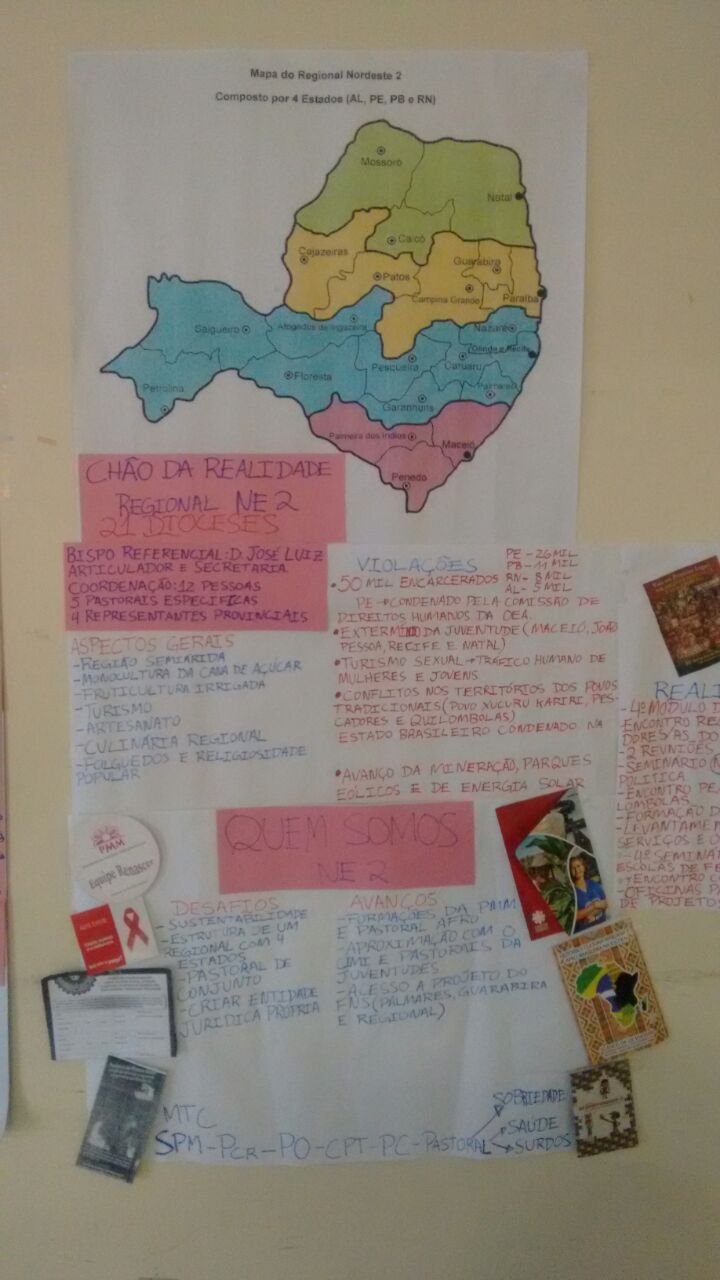 Mapa do Regional Nordeste 2
Composto por 4 Estados (AL, PE, PB e RN)
Mossoró
Natal
Caicó
Cajazeiras
Guarabira
Patos
Campina Grande
Paraíba
Salgueiro
Afogados da Ingazeira
Nazaré
Olinda e Recife
Pesqueira
Caruaru
Floresta
Petrolina
Palmares
Garanhuns
Palmeira dos Índios
Maceió
Penedo
CHÃO DA REALIDADE
REGIONAL NE 2
21 DIOCESES
BISPO REFERENCIAL: D. JOSÉ LUIZ
ARTICULADOR E SECRETARIA
COORDENAÇÃO: 12 PESSOAS
5 PASTORAIS ESPECIFICAS
4 REPRESENTANTES PROVINCIAIS
ASPECTOS GERAIS
- REGIÃO SEMIARIDA
- MONOCULTURA DA CANA DE AÇÚCAR
- FRUTICULTURA IRRIGADA
- TURISMO
- ARTESANATO
- CULINÁRIA REGIONAL
- FOLGUEDOS E RELIGIOSIDADE
POPULAR
VIOLAÇÕES
PE - 26 MIL
PB - 11 MIL
RN - 8 MIL
AL - 5 MIL
• 50 MIL ENCARCERADOS
PE → CONDENADO PELA COMISSÃO DE
DIREITOS HUMANOS DA OEA.
• EXTERMINIO DA JUVENTUDE (MACEIÓ, JOÃO
PESSOA, RECIFE E NATAL)
• TURISMO SEXUAL → TRÁFICO HUMANO DE
MULHERES E JOVENS
• CONFLITOS NOS TERRITÓRIOS DOS POVOS
TRADICIONAIS (POVO XUCURU KARIRI, PES-
CADORES E QUILOMBOLAS)
ESTADO BRASILEIRO CONDENADO NA
• AVANÇO DA MINERAÇÃO, PARQUES
EÓLICOS E DE ENERGIA SOLAR
REALI
- 4º MÓDULO D
ENCONTRO RE
DORES/AS DO
- 2 REUNIÕES
- SEMINÁRIO (N
POLITICA
- ENCONTRO DE
LOMBOLAS
- FORMAÇÃO D
- LEVANTAMEN
SERVIÇOS E
- 4º SEMINÁ
ESCOLAS DE FÉ
- ENCONTRO
- OFICINAS P
DE PROJETO
QUEM SOMOS
NE 2
PMM
Equipe Renascer
DESAFIOS
- SUSTENTABILIDADE
- ESTRUTURA DE UM
REGIONAL COM 4
ESTADOS
- PASTORAL DE
CONJUNTO
- CRIAR ENTIDADE
JURÍDICA PRÓPRIA
AVANÇOS
- FORMAÇÕES DA PMM
E PASTORAL AFRO
- APROXIMAÇÃO COM O
CIMI E PASTORAIS DA
JUVENTUDES
- ACESSO A PROJETO DO
FNS (PALMARES, GUARABIRA
E REGIONAL)
MTC
SPM - PCR - PO - CPT - PC - PASTORAL
SOBRIEDADE
SAÚDE
SURDOS